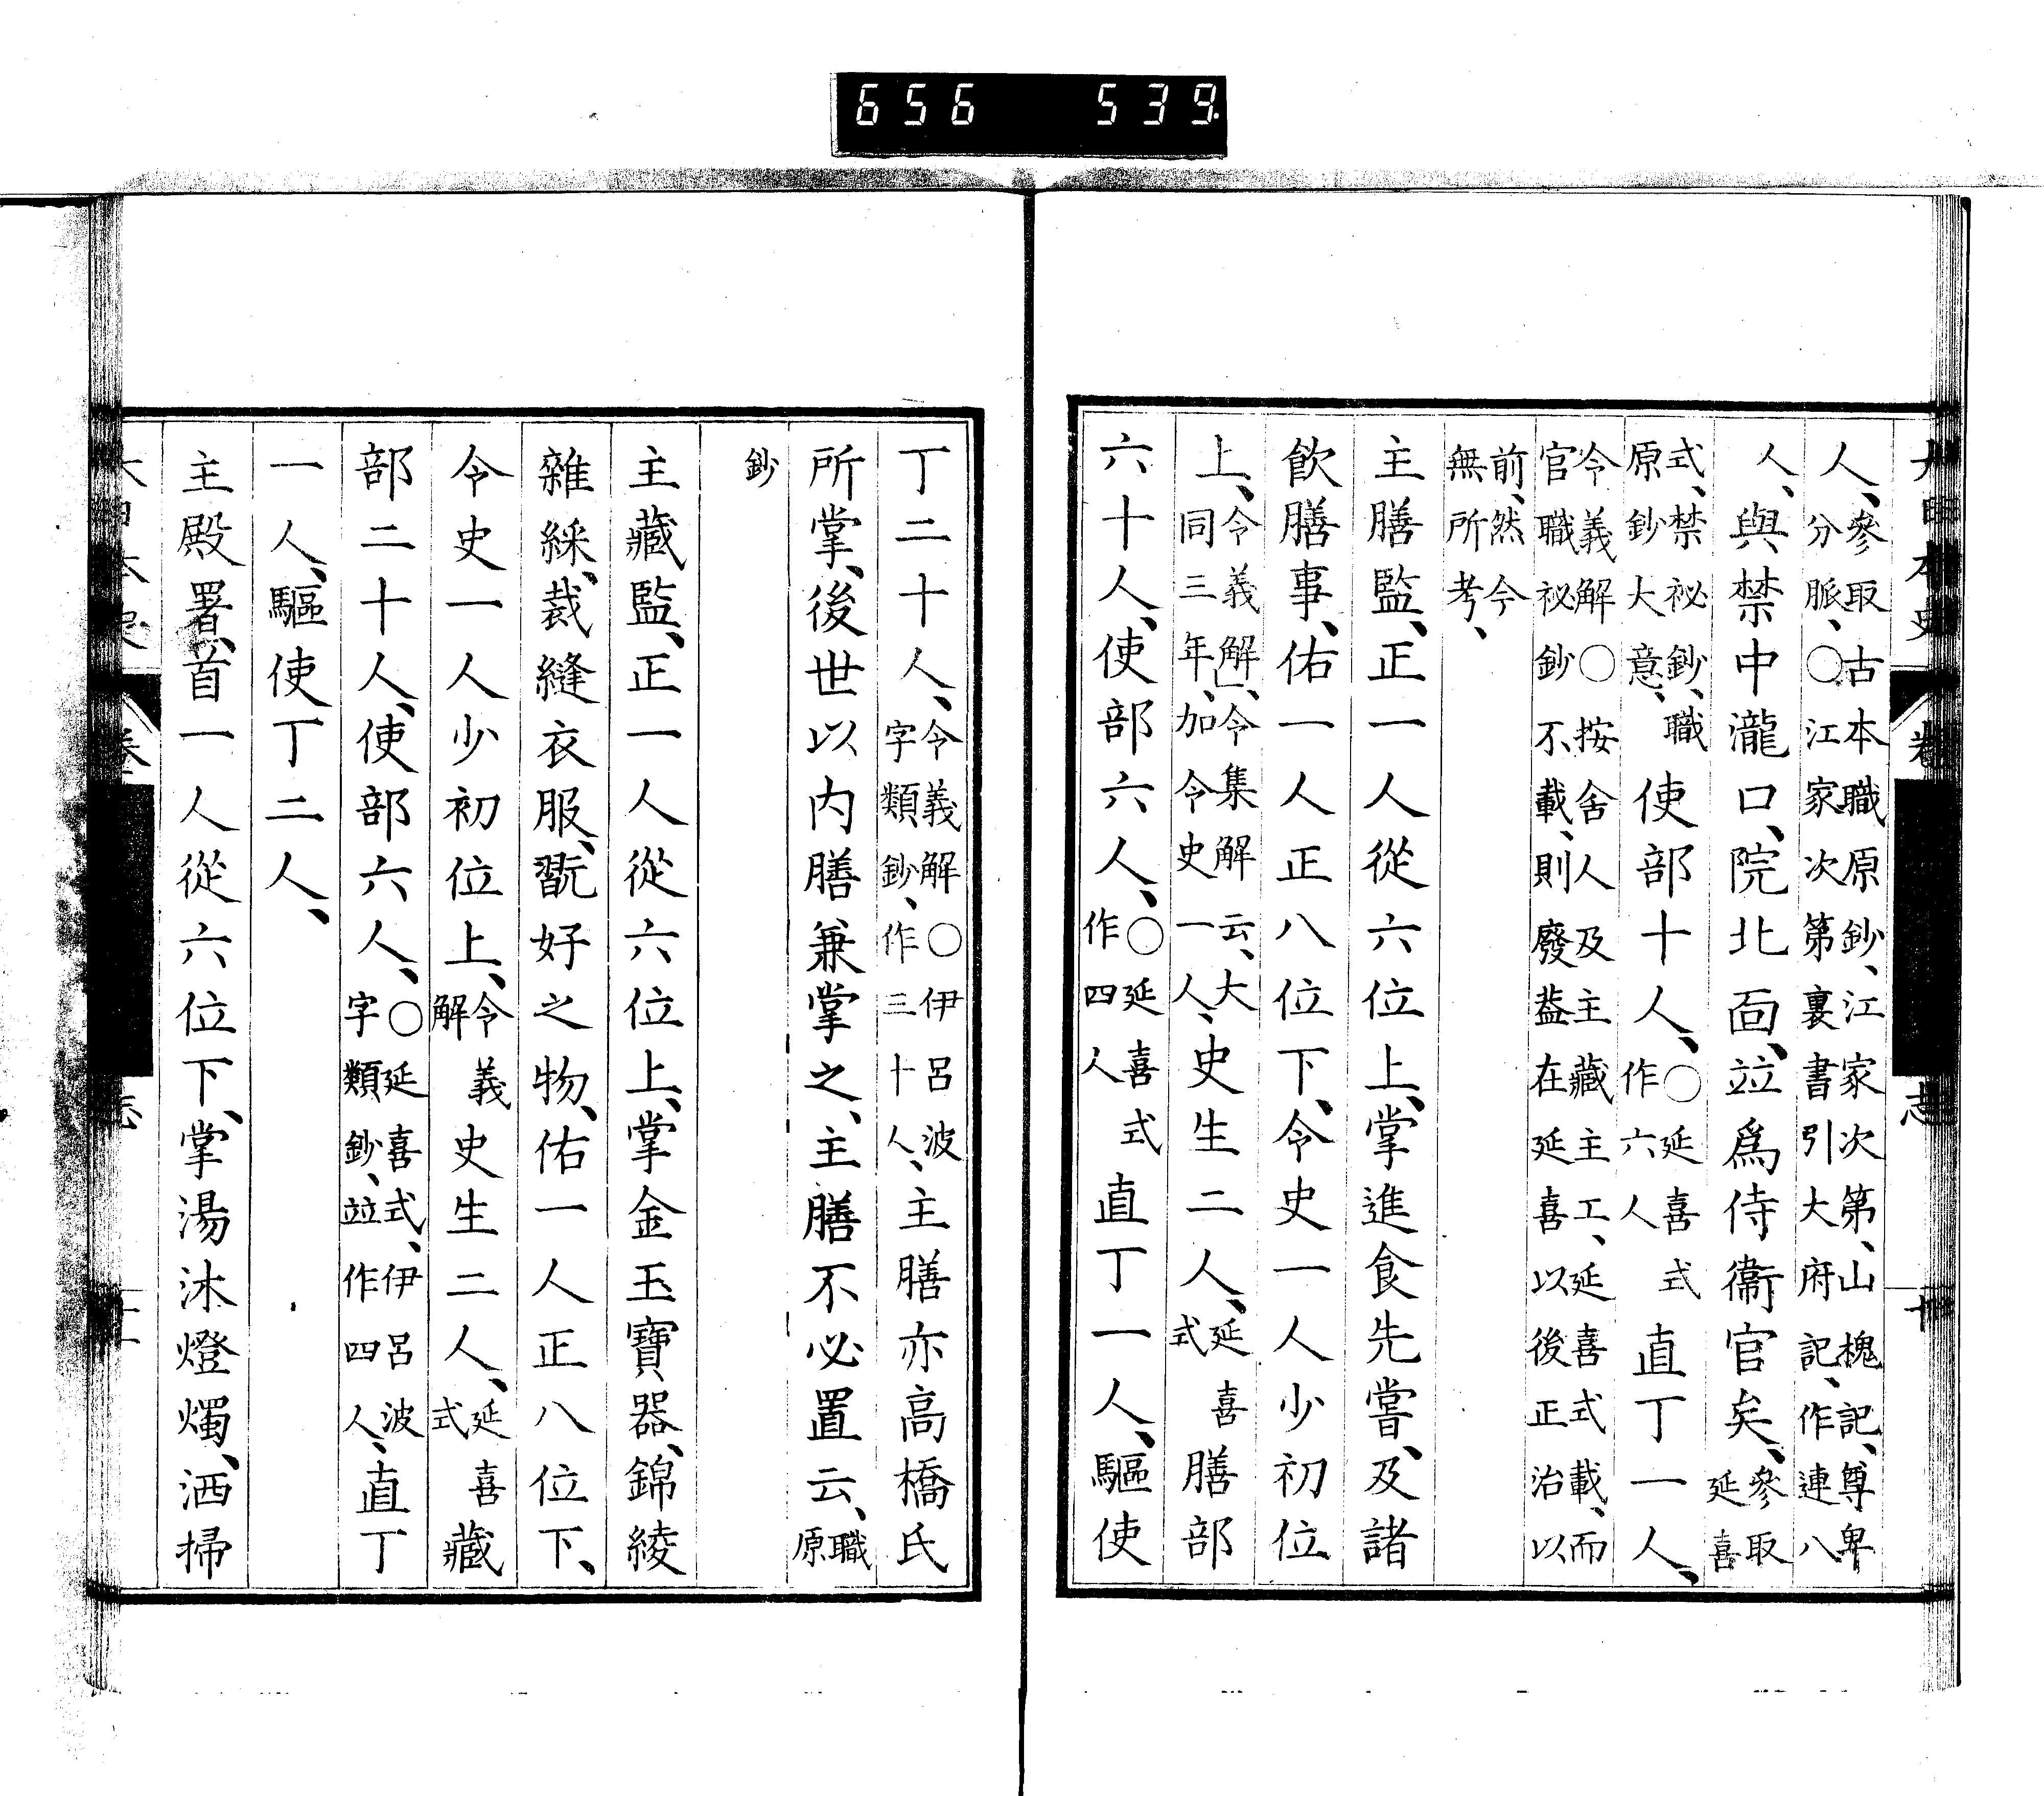 656 539.
人、參取古本職原鈔、江家次第、山槐記、尊卑分脈、○江家次第裏書引大府記、作連八
人、與禁中瀧口、院北面、竝爲侍衞官矣、參取延喜
式、禁祕鈔、職原鈔大意、使部十人、○延喜式作六人直丁一人、
令義解○按舍人及主藏主工、延喜式載、而官職祕鈔不載、則廢葢在延喜以後正治以
前、然今無所考、
主膳監、正一人從六位上、掌進食先嘗、及諸
飲膳事、佑一人正八位下、令史一人少初位
上、令義解、令集解云、大同三年、加令史一人、史生二人、延喜式膳部
六十人、使部六人、○延喜式作四人直丁一人、驅使
丁二十人、令義解○伊呂波字類鈔、作三十人、主膳亦高橋氏
所掌、後世以内膳兼掌之、主膳不必置云、職原
鈔
主藏監、正一人從六位上、掌金玉寶器、錦綾
雜綵、裁縫衣服、翫好之物、佑一人正八位下、
令史一人少初位上、令義解史生二人、延喜式藏
部二十人、使部六人、○延喜式、伊呂波字類鈔、竝作四人、直丁
一人、驅使丁二人、
主殿署、首一人從六位下、掌湯沐燈燭、洒掃